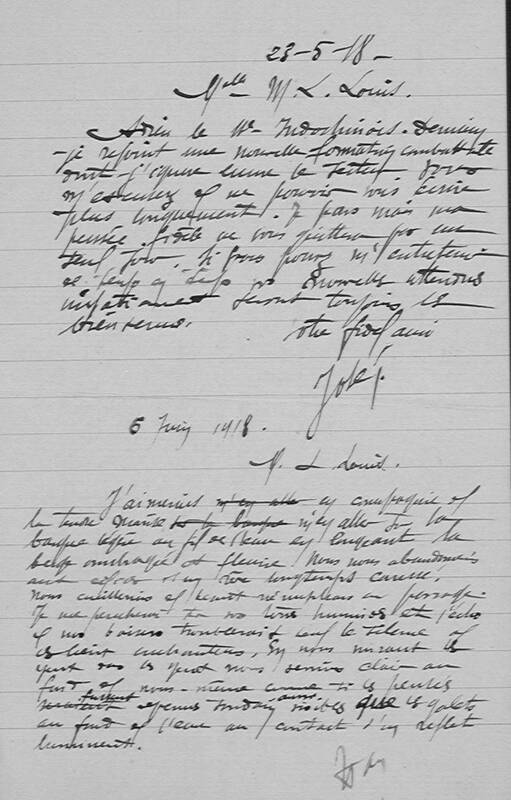 23-5-18-
Mlle M. L. Louis.
Adieu le Indochinois. Demain
je rejoint une nouvelle formation combattante
dont j'ignore le secteur. Vous
m'excuserez de ne pouvoir vous écrire
plus longuement. Je pars mais ma
pensée fidèle ne vous quittera pas un
seul jour. Si vous pouvez m'
de temps en temps vos nouvelles attendues
seront toujours les
bienvenues.
otre fidèl ami
José.
6 Juin 1918.
M. L Louis.
J'aimerais m'en aller en compagnie de
la tendre la barque m'en aller sur la
barque légère au fil de l'eau en longeant la
berge ombragée et fleurie. Nous nous abandonnerions
rêve longtemps caressé.
Nous cueillerions au passage.
Je me pencherai sur vos lèvres humides et l'écho
de nos baisers troublerait seul le silence de
ces lieux enchanteurs. En nous mirant les
yeux dans les yeux nous verrions clair au
fond de nous-même comme si les pensées
fussent soudain aussi visibles que les galets
au fond de l'eau au contact d'un reflet
luminent.